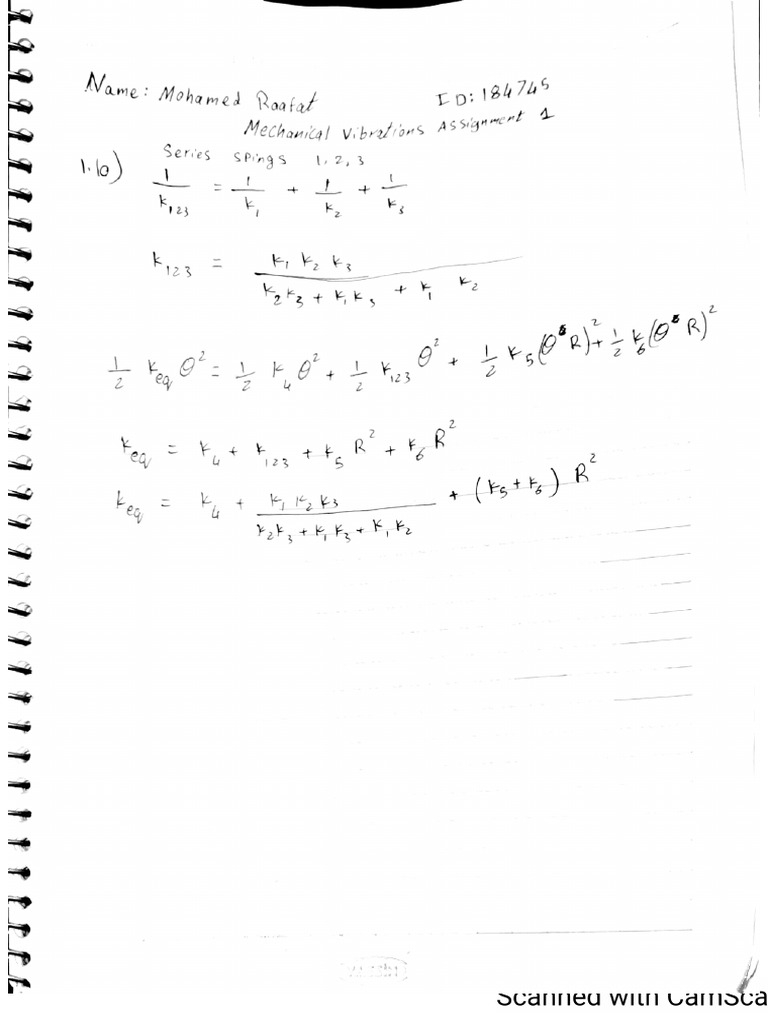 Name: Mohamed Raafat ID: 184745
Mechanical Vibrations Assignment 1
1.10) Series Spings 1, 2, 3
1/k₁₂₃ = 1/k₁ + 1/k₂ + 1/k₃
k₁₂₃ = k₁ k₂ k₃ / k₂k₃ + k₁k₃ + k₁ k₂
1/2 k_eq θ² = 1/2 k₄ θ² + 1/2 k₁₂₃ θ² + 1/2 k₅ (θ R)² + 1/2 k₆ (θ R)²
k_eq = k₄ + k₁₂₃ + k₅ R² + k₆ R²
k_eq = k₄ + k₁ k₂ k₃ / k₂k₃ + k₁k₃ + k₁k₂ + (k₅ + k₆) R²
Scanned with CamSca